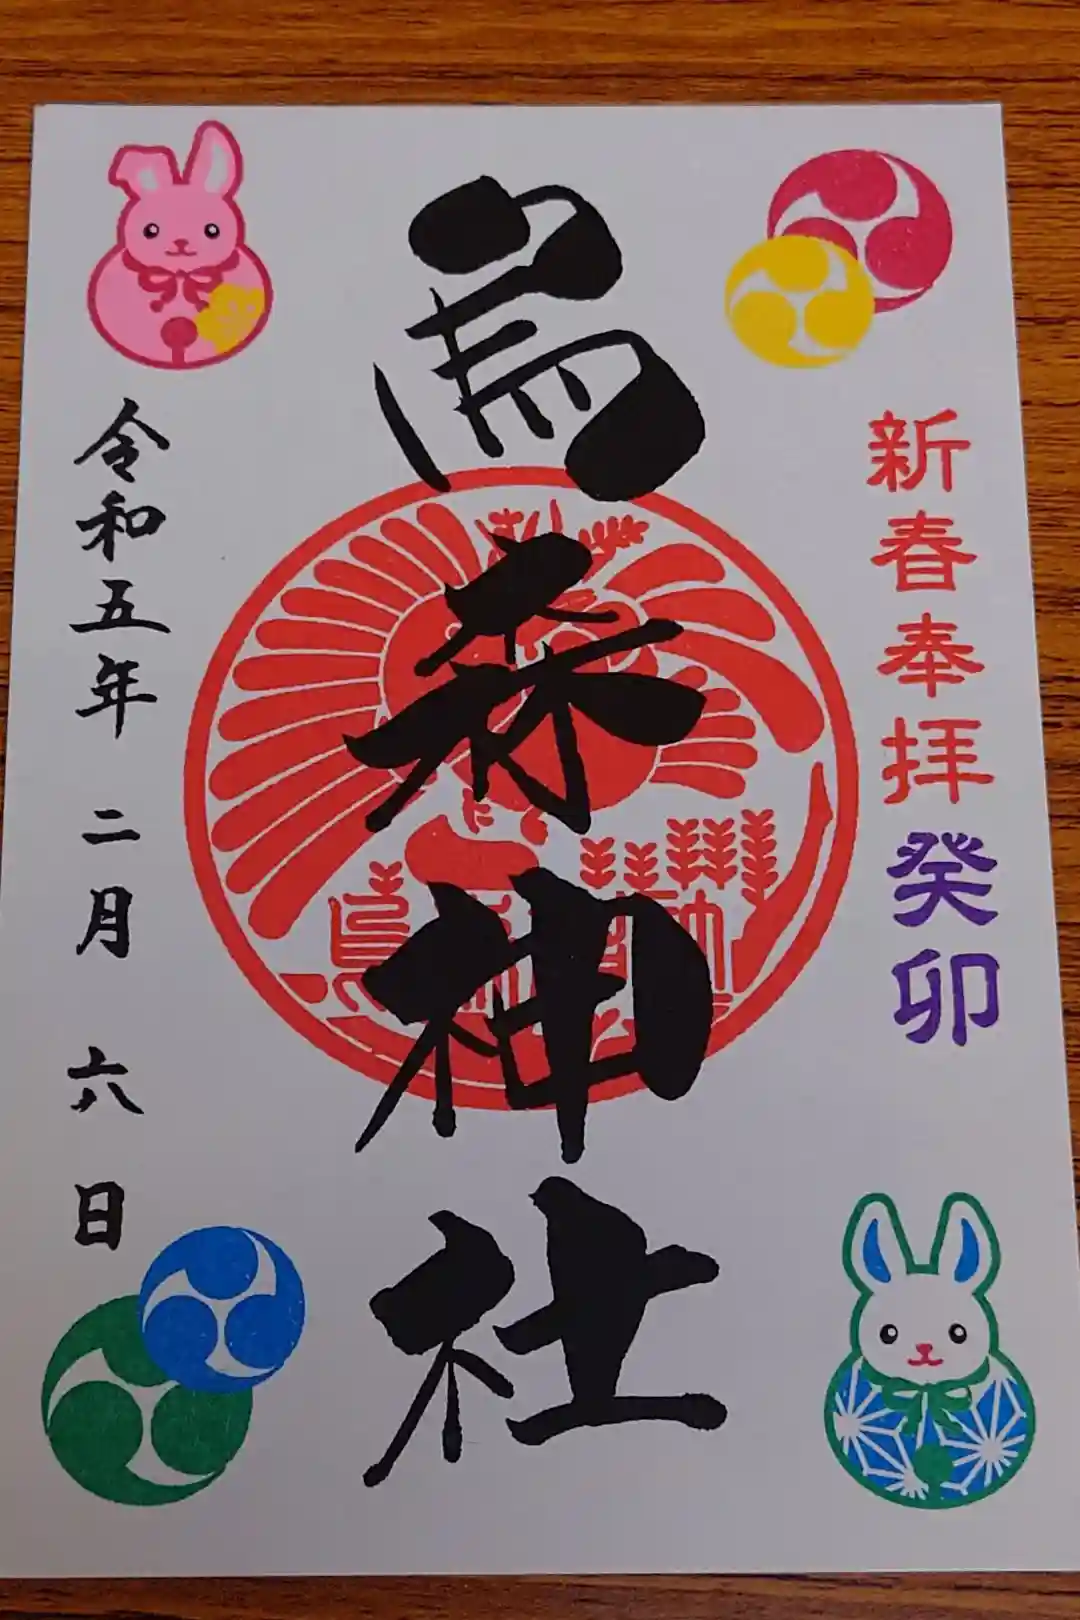 新春奉拝
癸卯
烏森神社
令和五年 二月 六日